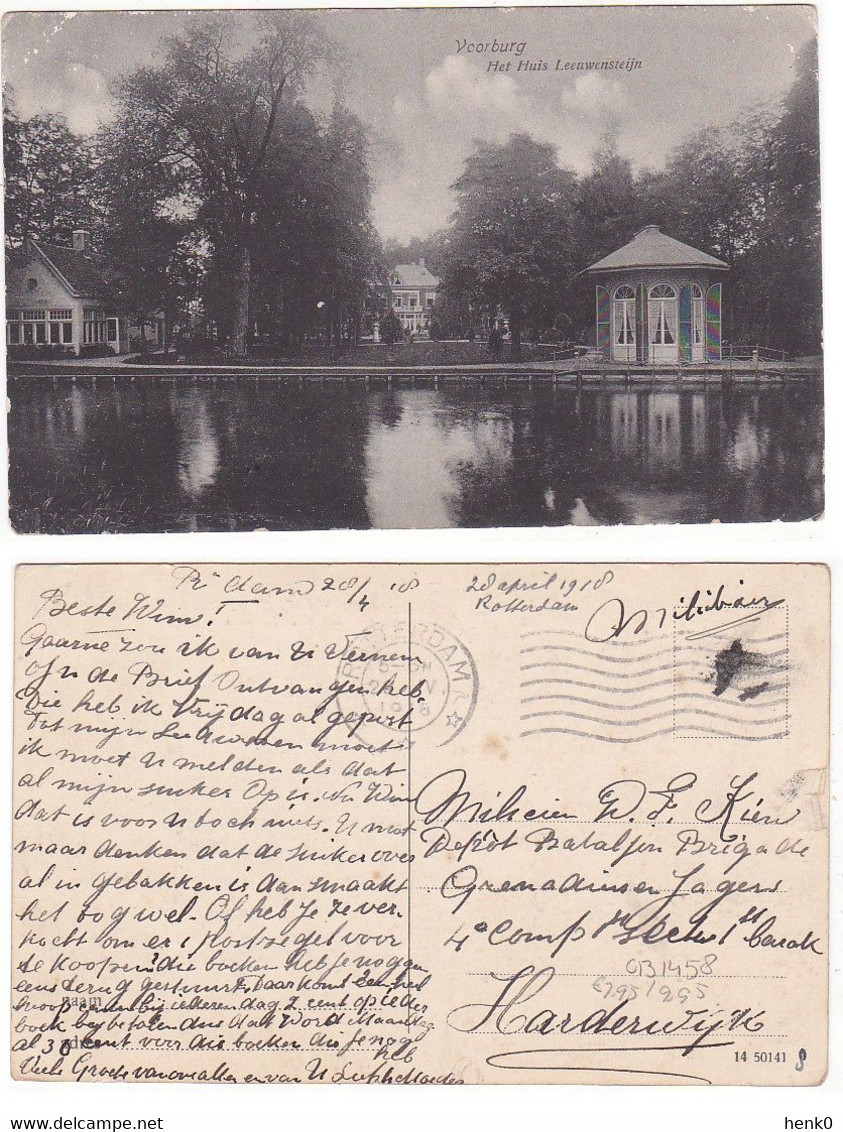 Voorburg
Het Huis Leeuwensteijn
R'dam 28/4 '18
28 april 1918
Rotterdam
Militair
Beste Wim!
Gaarne zou ik van U Vernem
of U de Brief Ontvangen heb.
Die heb ik Vrijdag al gepost
tot mijn moet
ik moet U melden als dat
al mijn suiker Op is. Nu Wim
dat is voor U toch niets. U moet
maar denken dat de suiker over
al in gebakken is dan smaakt
het tog wel. Of heb Je ze ver.
kocht om er 1 Postzegel voor
te koopen? die boeken heb je nog gen
eens terug gestuurt. Daar komt een heel
hoop centen bij iederen dag 2 cent op ieder
boek bij betalen dus dat word Maandag
al 38 cent voor die boeken die Je nog
heb
Veele Groete van ons allen en van U Moeder
ROTTERDAM
1918
Milicien W. F.
Depôt Bataljon Brigade
Grenadiers en Jagers
4e Comp 1ste barak
OB1458
€7,95 / 2,95
Harderwijk
naam
adres
14 50141
8
henk0